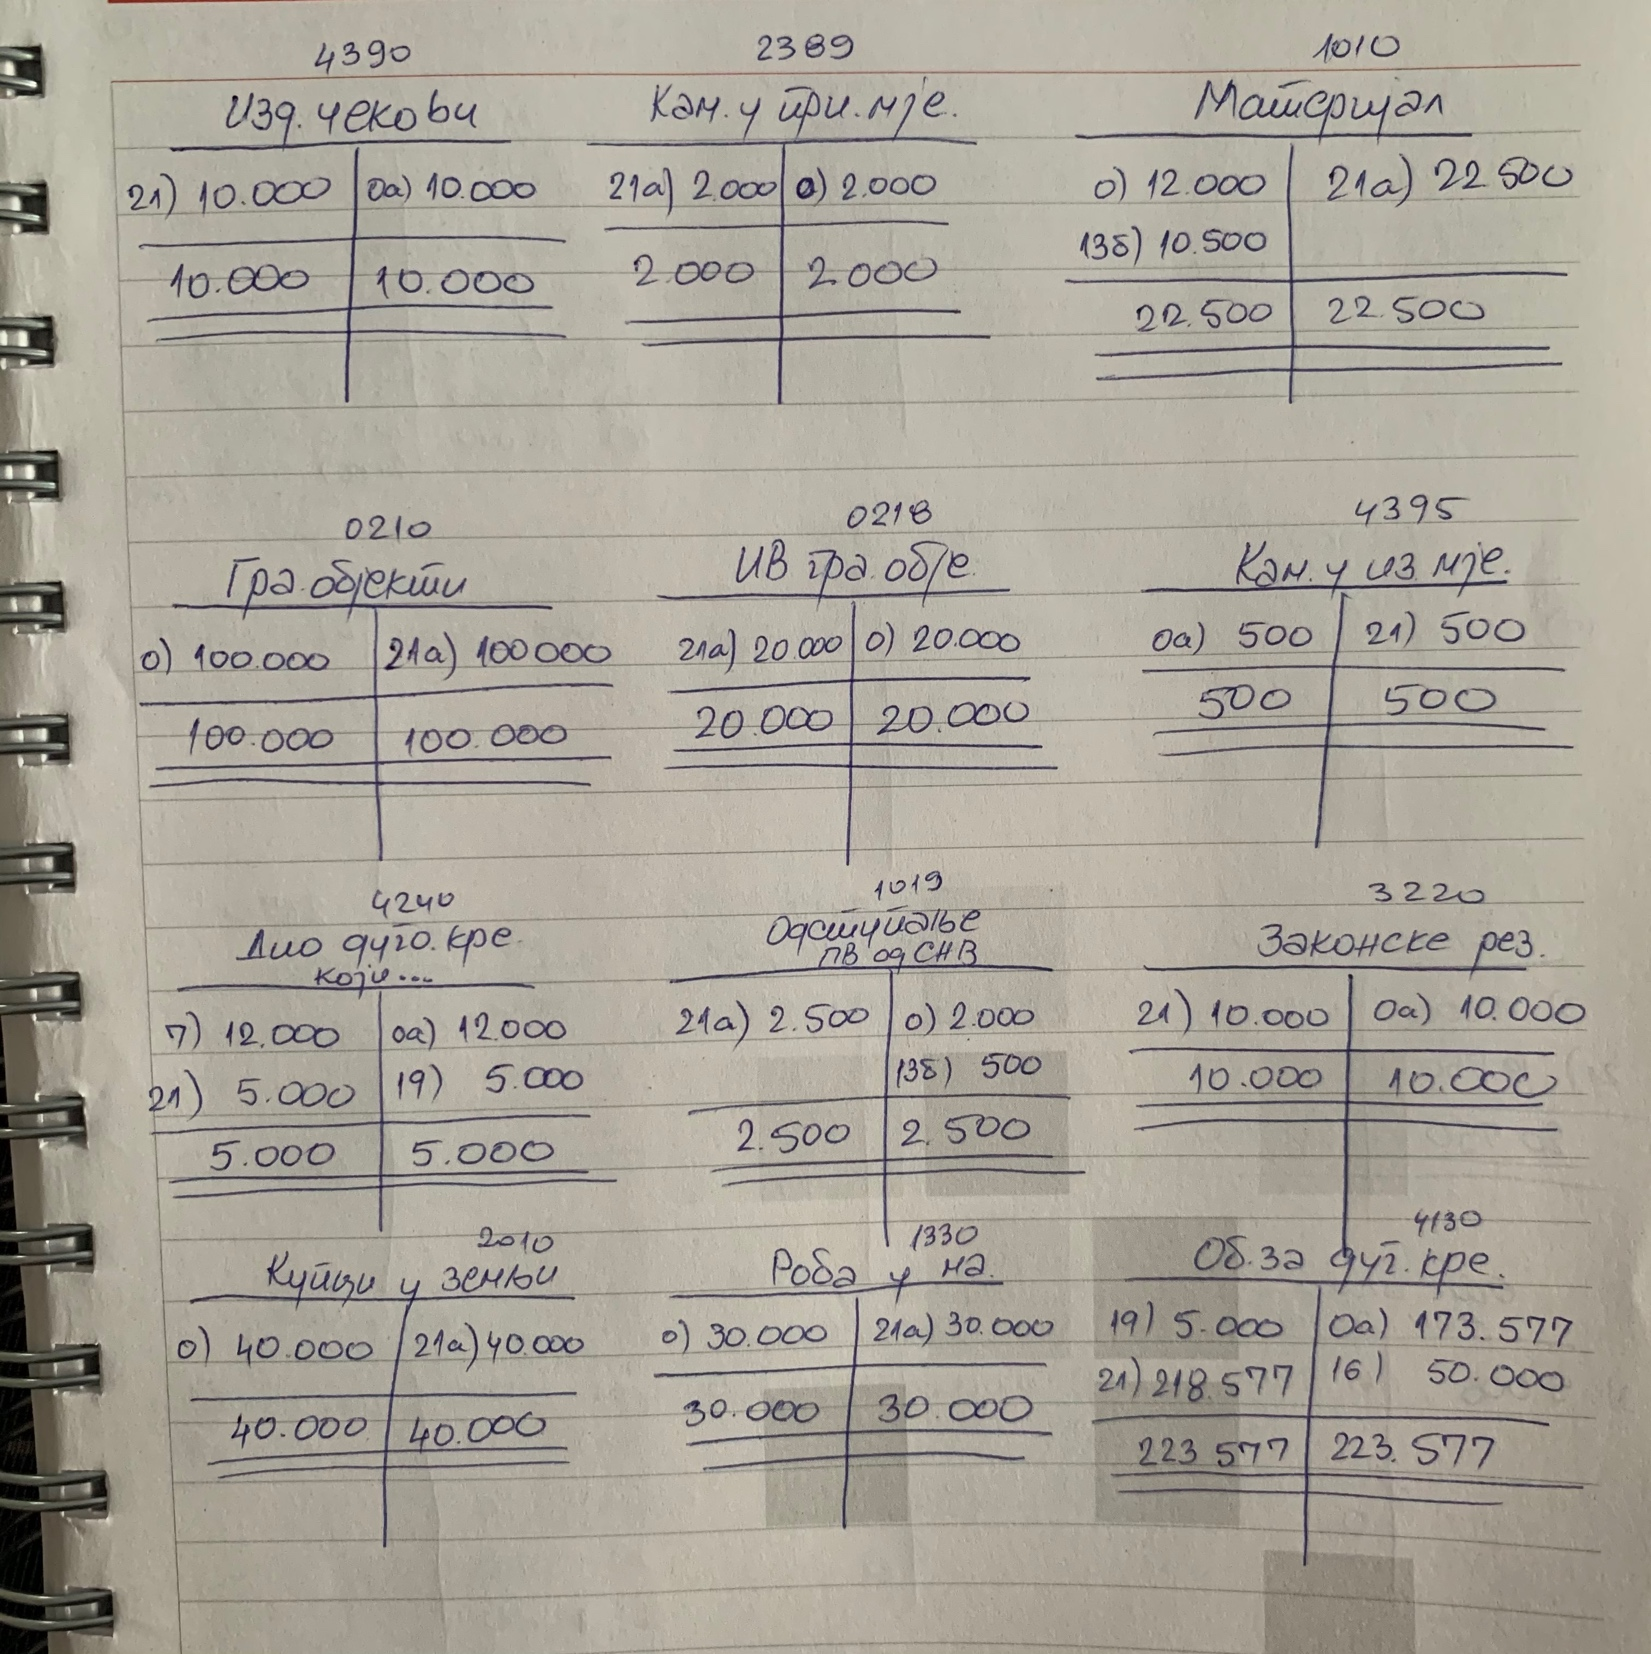 4390
Изд. чекови
21) 10.000 0а) 10.000
10.000 10.000
2389
Кам. у при. мје.
21а) 2.000 0) 2.000
2.000 2.000
1010
Материјал
0) 12.000 21а) 22 500
13б) 10.500
22.500 22.500
0210
Гра. објекти
0) 100.000 21а) 100000
100.000 100.000
0218
ИВ гра. обје.
21а) 20.000 0) 20.000
20.000 20.000
4395
Кам. у из. мје.
0а) 500 21) 500
500 500
4240
Дио дуго. кре.
који...
7) 12.000 0а) 12.000
21) 5.000 19) 5.000
5.000 5.000
1019
Одступање
ПВ од СНВ
21а) 2.500 0) 2.000
13б) 500
2.500 2.500
3220
Законске рез.
21) 10.000 0а) 10.000
10.000 10.000
2010
Купци у земљи
0) 40.000 21а) 40.000
40.000 40.000
1330
Роба у на.
0) 30.000 21а) 30.000
30.000 30.000
4130
Об. за дуг. кре.
19) 5.000 0а) 173.577
21) 218.577 16) 50.000
223 577 223.577